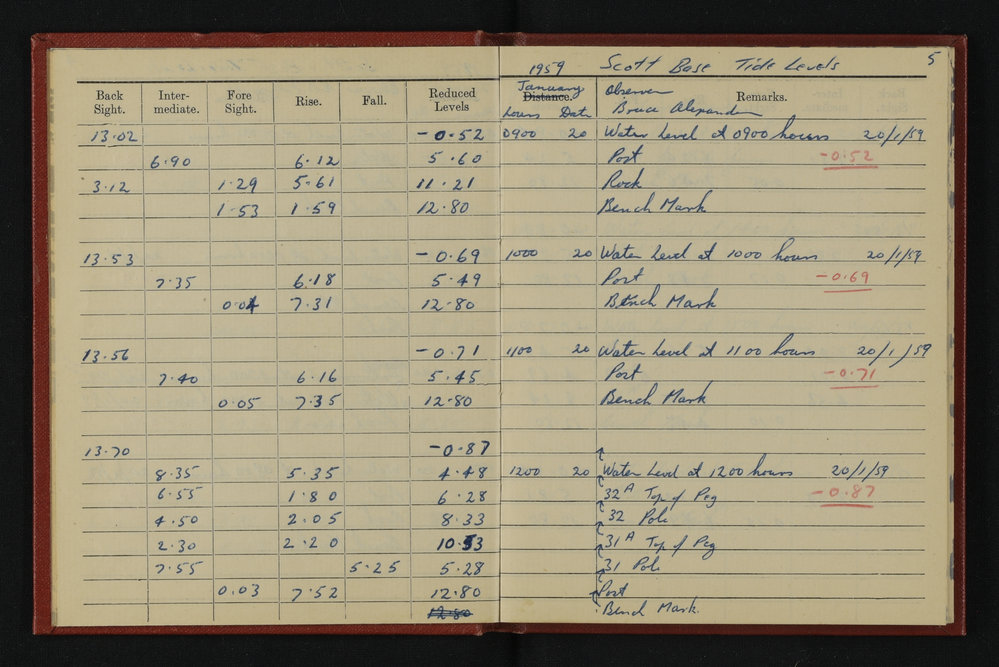 1959 Scott Base Tide Levels 5
Back Sight. Inter-mediate. Fore Sight. Rise. Fall. Reduced Levels January Distance. hours Date Observer Bruce Alexander Remarks.
13.02 -0.52 0900 20 Water Level at 0900 hours 20/1/59
6.90 6.12 5.60 Post -0.52
3.12 1.29 5.61 11.21 Rock
1.53 1.59 12.80 Bench Mark
13.53 -0.69 1000 20 Water Level at 1000 hours 20/1/59
7.35 6.18 5.49 Post -0.69
0.04 7.31 12.80 Bench Mark
13.56 -0.71 1100 20 Water Level at 1100 hours 20/1/59
7.40 6.16 5.45 Post -0.71
0.05 7.35 12.80 Bench Mark
13.70 -0.87
8.35 5.35 4.48 1200 20 Water Level at 1200 hours 20/1/59
6.55 1.80 6.28 32A Top of Peg -0.87
4.50 2.05 8.33 32 Pole
2.30 2.20 10.53 31A Top of Peg
7.55 5.25 5.28 31 Pole
0.03 7.52 12.80 Post
12.80 Bench Mark.